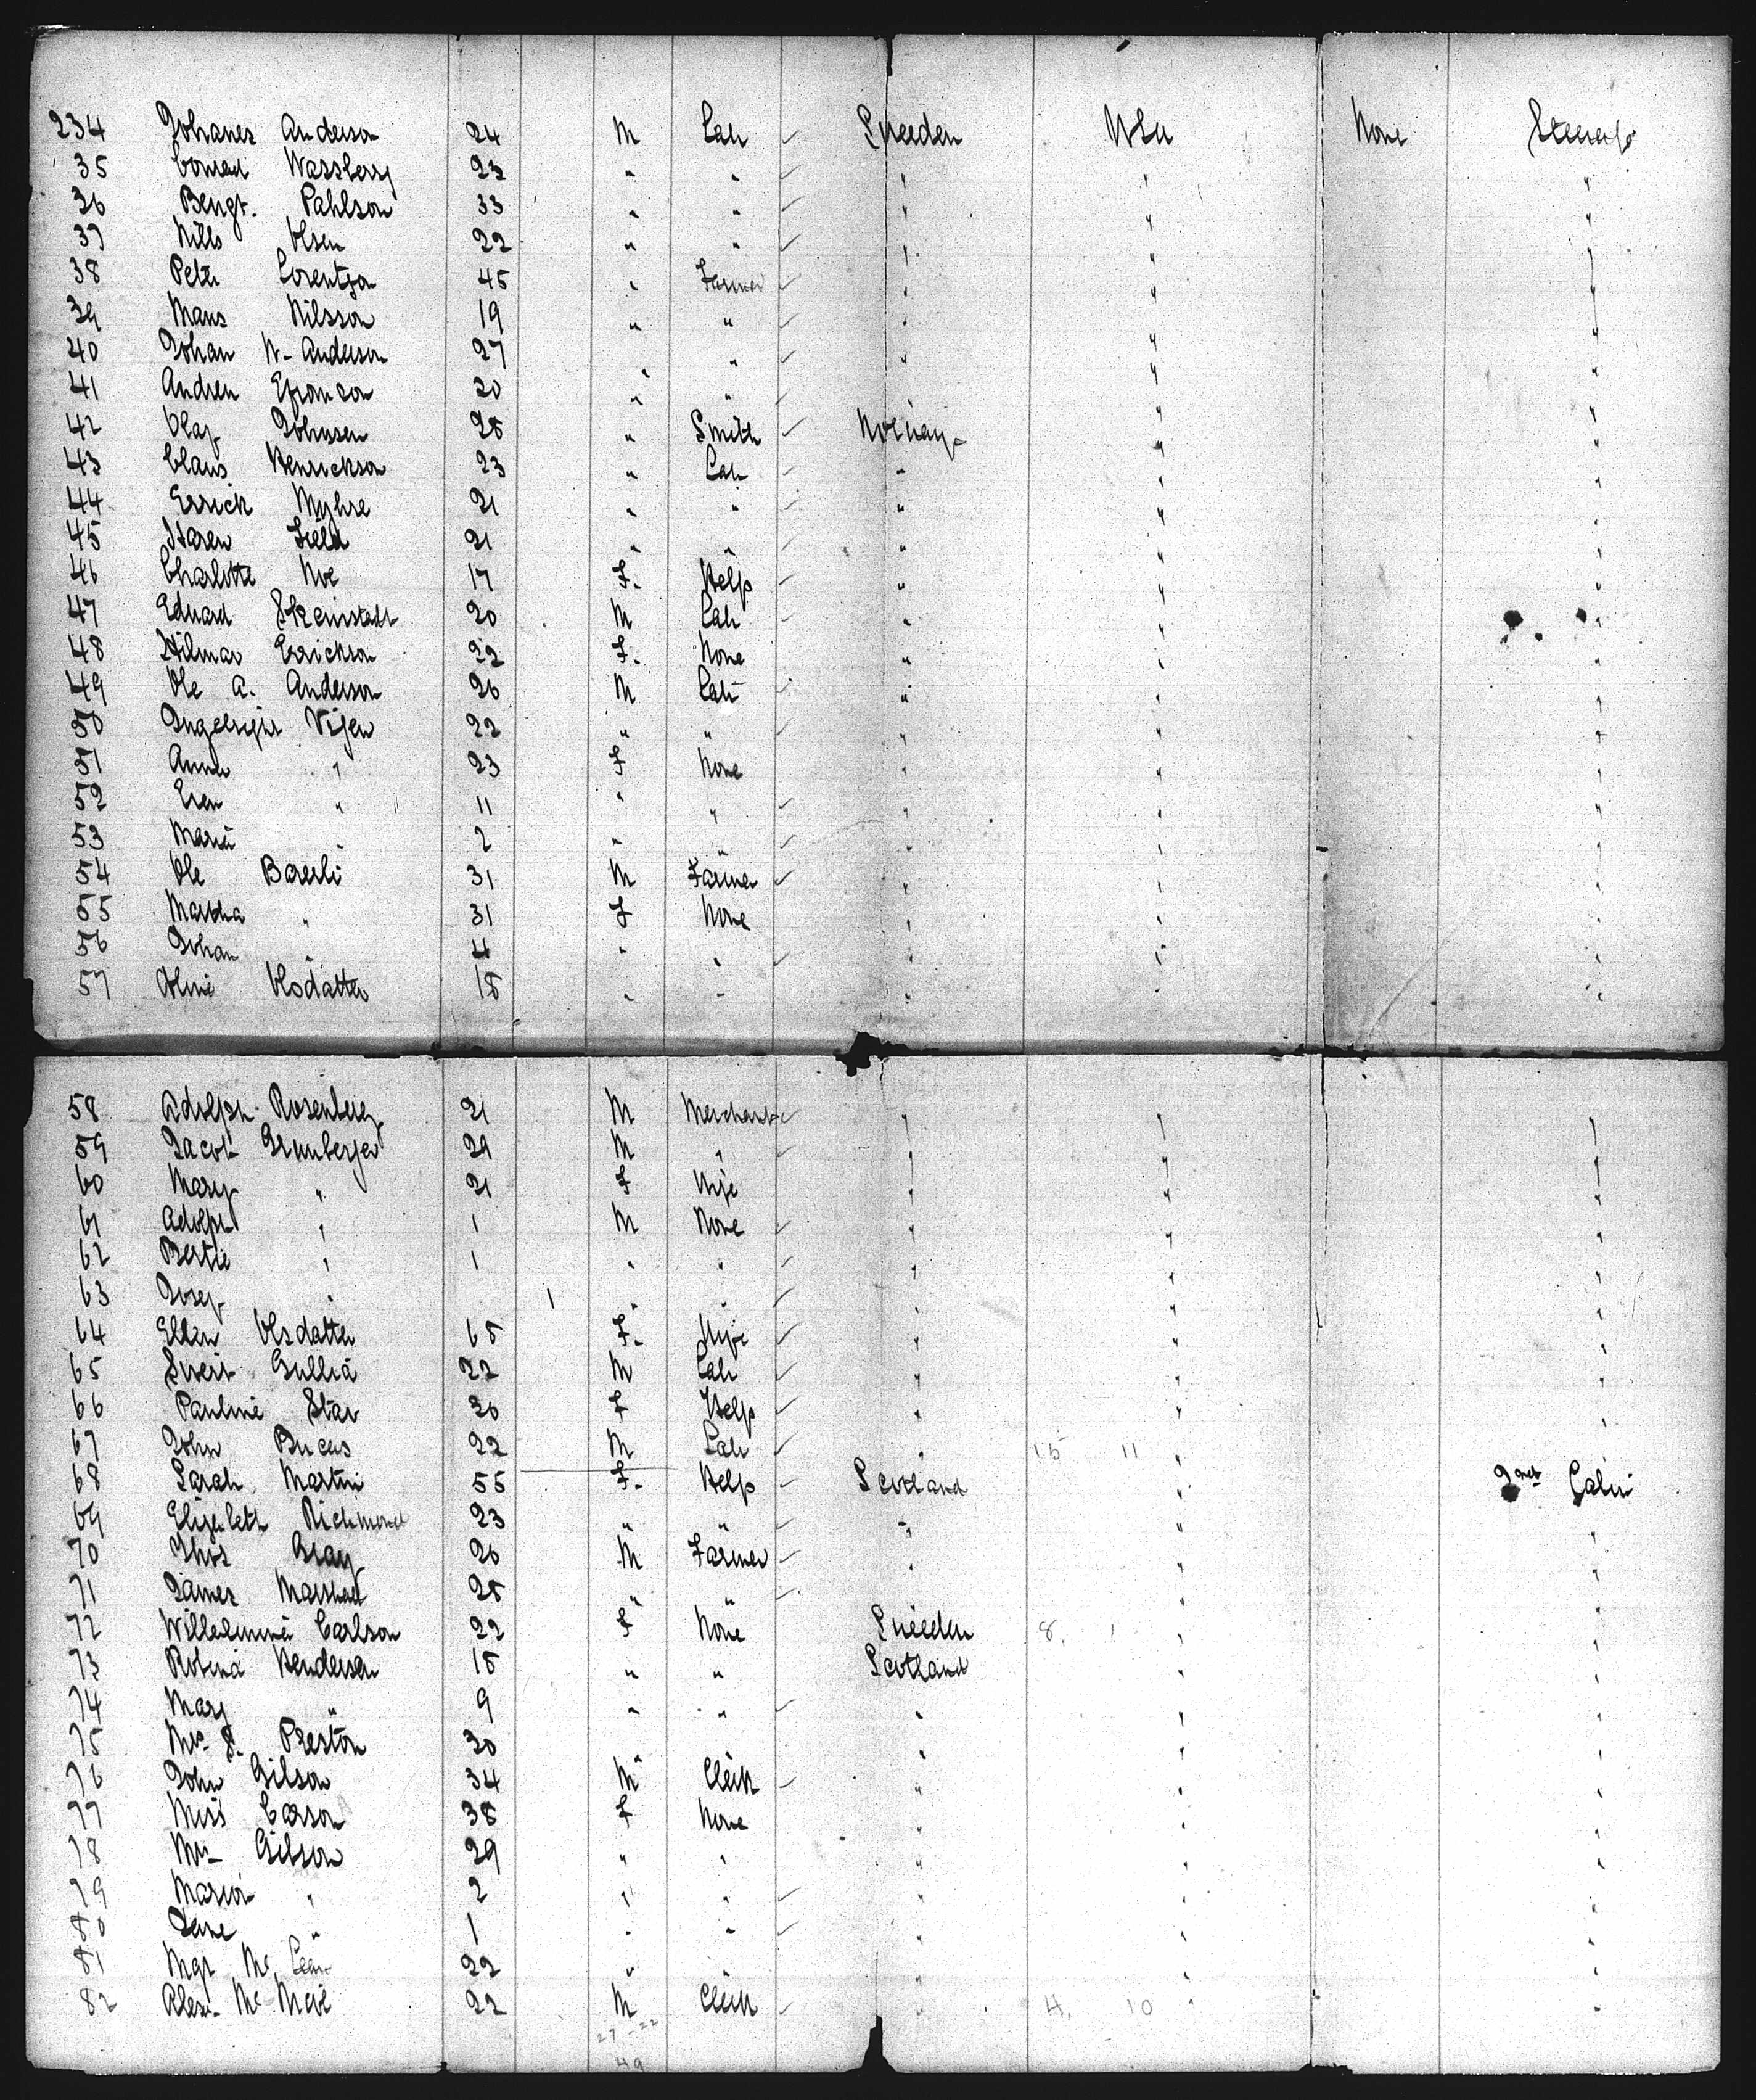 234 Johanes Anderson 24 M Lab ✓ Sweden USA None Steerage
35 Conrad Wassberg 23 " " ✓ " " "
36 Bengt. Pahlson 33 " " ✓ " " "
37 Nills Olsen 22 " " ✓ " " "
38 Peter Lorentzon 45 " Farmer ✓ " " "
39 Mans Nilsson 19 " " ✓ " " "
40 Johan N- Anderson 27 " " ✓ " " "
41 Andrew 20 " " ✓ " " "
42 Olaf Johnsen 28 " Smith ✓ Norway " "
43 Claus Henrickson 23 " Lab ✓ " " "
44 Errick Myhre 21 " " ✓ " " "
45 Field 21 " " ✓ " " "
46 Charlotte Moe 17 F. Help ✓ " " "
47 Eduard 20 M Lab ✓ " " "
48 Hilmar Errickson 22 F. None ✓ " " "
49 Ole A. Anderson 26 M Lab " " "
50 Vigen 22 " " " " "
51 Anna " 23 F None " " "
52 " 11 " " ✓ " " "
53 Maria " 2 " " ✓ " " "
54 Ole 31 M Farmer ✓ " " "
55 Martha " 31 F None " " "
56 Johan " 4 " " ✓ " " "
57 Oline Olsdatter 18 " " " " "
58 Adolph Rosenberg 21 M Merchant ✓ " " "
59 Jacob 29 M " " " "
60 Mary " 21 F Wife " " "
61 Adolph " 1 M None ✓ " " "
62 Bertie " 1 " " ✓ " " "
63 Josef " 1 " " ✓ " " "
64 Ellen Olsdatter 65 F. Wife ✓ " " "
65 Sveir 22 M Lab ✓ " " "
66 Pauline Star 30 F Help ✓ " " "
67 John 22 M Lab ✓ " 15 11 " "
68 Sarah Martin 55 F. Help ✓ Scotland " 2nd Cabin
69 Elizabeth Richmond 23 " " ✓ " " "
70 Thos Gray 26 M Farmer ✓ " " "
71 James Marshall 28 " " ✓ " " "
72 Willelmina Carlson 22 F None Sweden 8. 1 " "
73 Robina Henderson 18 " " Scotland " "
74 Mary " 9 " " ✓ " " "
75 Mrs. S. Preston 30 " " " "
76 John Gilson 34 M Clerk ✓ " " "
77 Miss Carson 38 F None " " "
78 Mrs- Gilson 29 " " " " "
79 Marion " 2 " " ✓ " " "
80 Jane " 1 " " ✓ " " "
81 Mgt Mc 22 " " " " "
82 Alex. Mc 22 M Clerk ✓ " 4. 10 " "
27-22
49